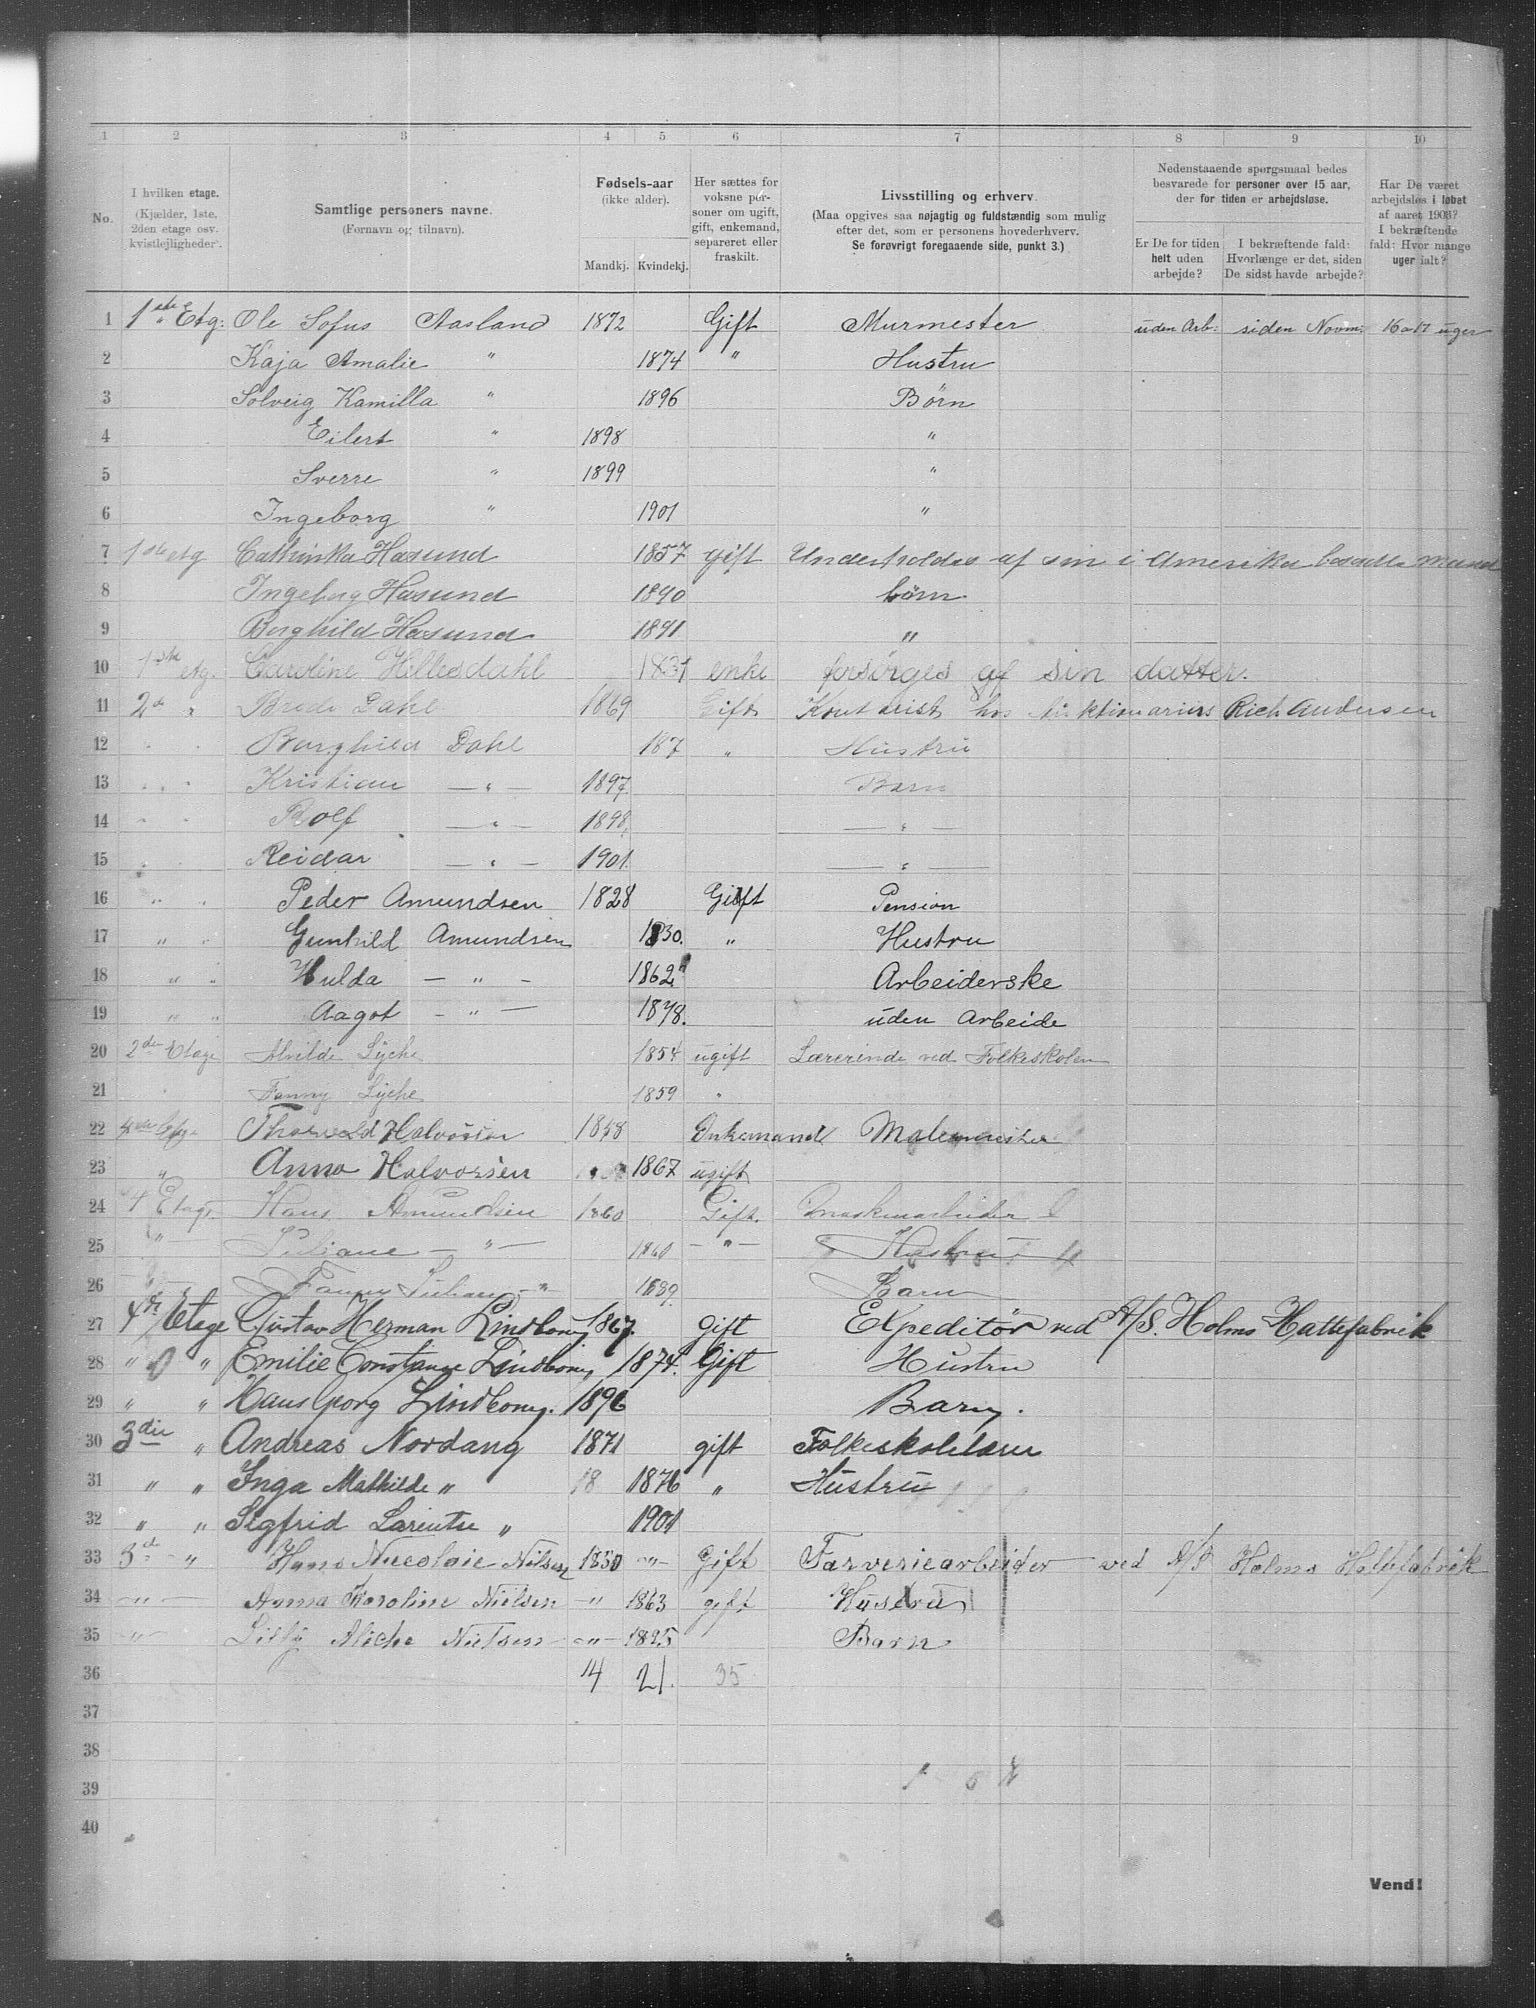 1 2 3 4 5 6 7 8 9 10
No.
I hvilken etage.
(Kjælder, 1ste,
2den etage osv.
kvistlejligheder).
Samtlige personers navne.
(Fornavn og tilnavn).
Fødsels-aar
(ikke alder).
Mandkj. Kvindekj.
Her sættes for
voksne per-
soner om ugift,
gift, enkemand,
separeret eller
fraskilt.
Livsstilling og erhverv.
(Maa opgives saa nøjagtig og fuldstændig som mulig
efter det, som er personens hovederhverv.
Se forøvrigt foregaaende side, punkt 3.)
Nedenstaaende spørgsmaal bedes
besvarede for personer over 15 aar,
der for tiden er arbejdsløse.
Er De for tiden
helt uden
arbejde?
I bekræftende fald:
Hvorlænge er det, siden
De sidst havde arbejde?
Har De været
arbejdsløs i løbet
af aaret 1903?
I bekræftende
fald: Hvor mange
uger ialt?
1 1ste Etg: Ole Sofus Aasland 1872 Gift Murmester uden Arb: siden Novm: 16 a 17 uger
2 Kaja Amalie " 1874 " Hustru
3 Solveig Kamilla " 1896 Børn
4 Eilert " 1898 "
5 Sverre " 1899 "
6 Ingeborg " 1901 "
7 1ste etg Cathinka Hasund 1857 gift Underholdes af sin i Amerika bosatte mand
8 Ingeborg Hasund 1890 børn
9 Borghild Hasund 1891 "
10 1ste etg. Caroline Hellesdahl 1831 enke forsørges af sin datter.
11 2d " Brede Dahl 1869 Gift Kontorist hos Auktionarius Rich Andersen
12 " " Borghild Dahl 187 " Hustru
13 " " Kristian — " — 1897. Barn
14 " " Rolf — " — 1898. — " —
15 " " Reidar — " — 1901. — " —
16 " " Peder Amundsen 1828 Gift Pension
17 " " Gunhild Amundsen 1830. " Hustru
18 " " Hulda — " — 1862 Arbeiderske
19 " " Aagot — " — 1878. uden Arbeide
20 2den Etage Alvilde Lyche 1854 ugift Lærerinde ved Folkeskolen
21 " Fanny Lyche 1859 "
22 4de Etage Thorvald Halvorsen 1858 Enkemand Malemester
23 " Anna Halvorsen 1867 ugift
24 4 Etage Hans Amundsen 1860 Gift. Maskinarbeider
25 " Juliane — " — 1860 — " — Hustru
26 " Fanny Juliane — " 1889. Barn
27 4de Etage Gustav Herman Lindborg 1867. gift Expeditør ved A/S. Holms Hattefabrik
28 " " Emilie Constance Lindborg 1874. Gift Hustru
29 " " Hans Georg Lindborg. 1896 Barn.
30 3die " Andreas Nordang 1871 gift Folkeskolelærer
31 " " Inga Mathilde " 18 1876 " Hustru
32 " " Sigfrid Larentse " 1901
33 3d " Hans Nicolaie Nilsen 1850 — " — Gift Farveriearbeider ved A/S Holms Hattefabrik
34 — " — Anna Karoline Nielsen — " 1863 gift Hustru
35 — " — Lilly Aliche Nielsen — " — 1895 Barn
36 14 21. 35
37
38
39
40
Vend!